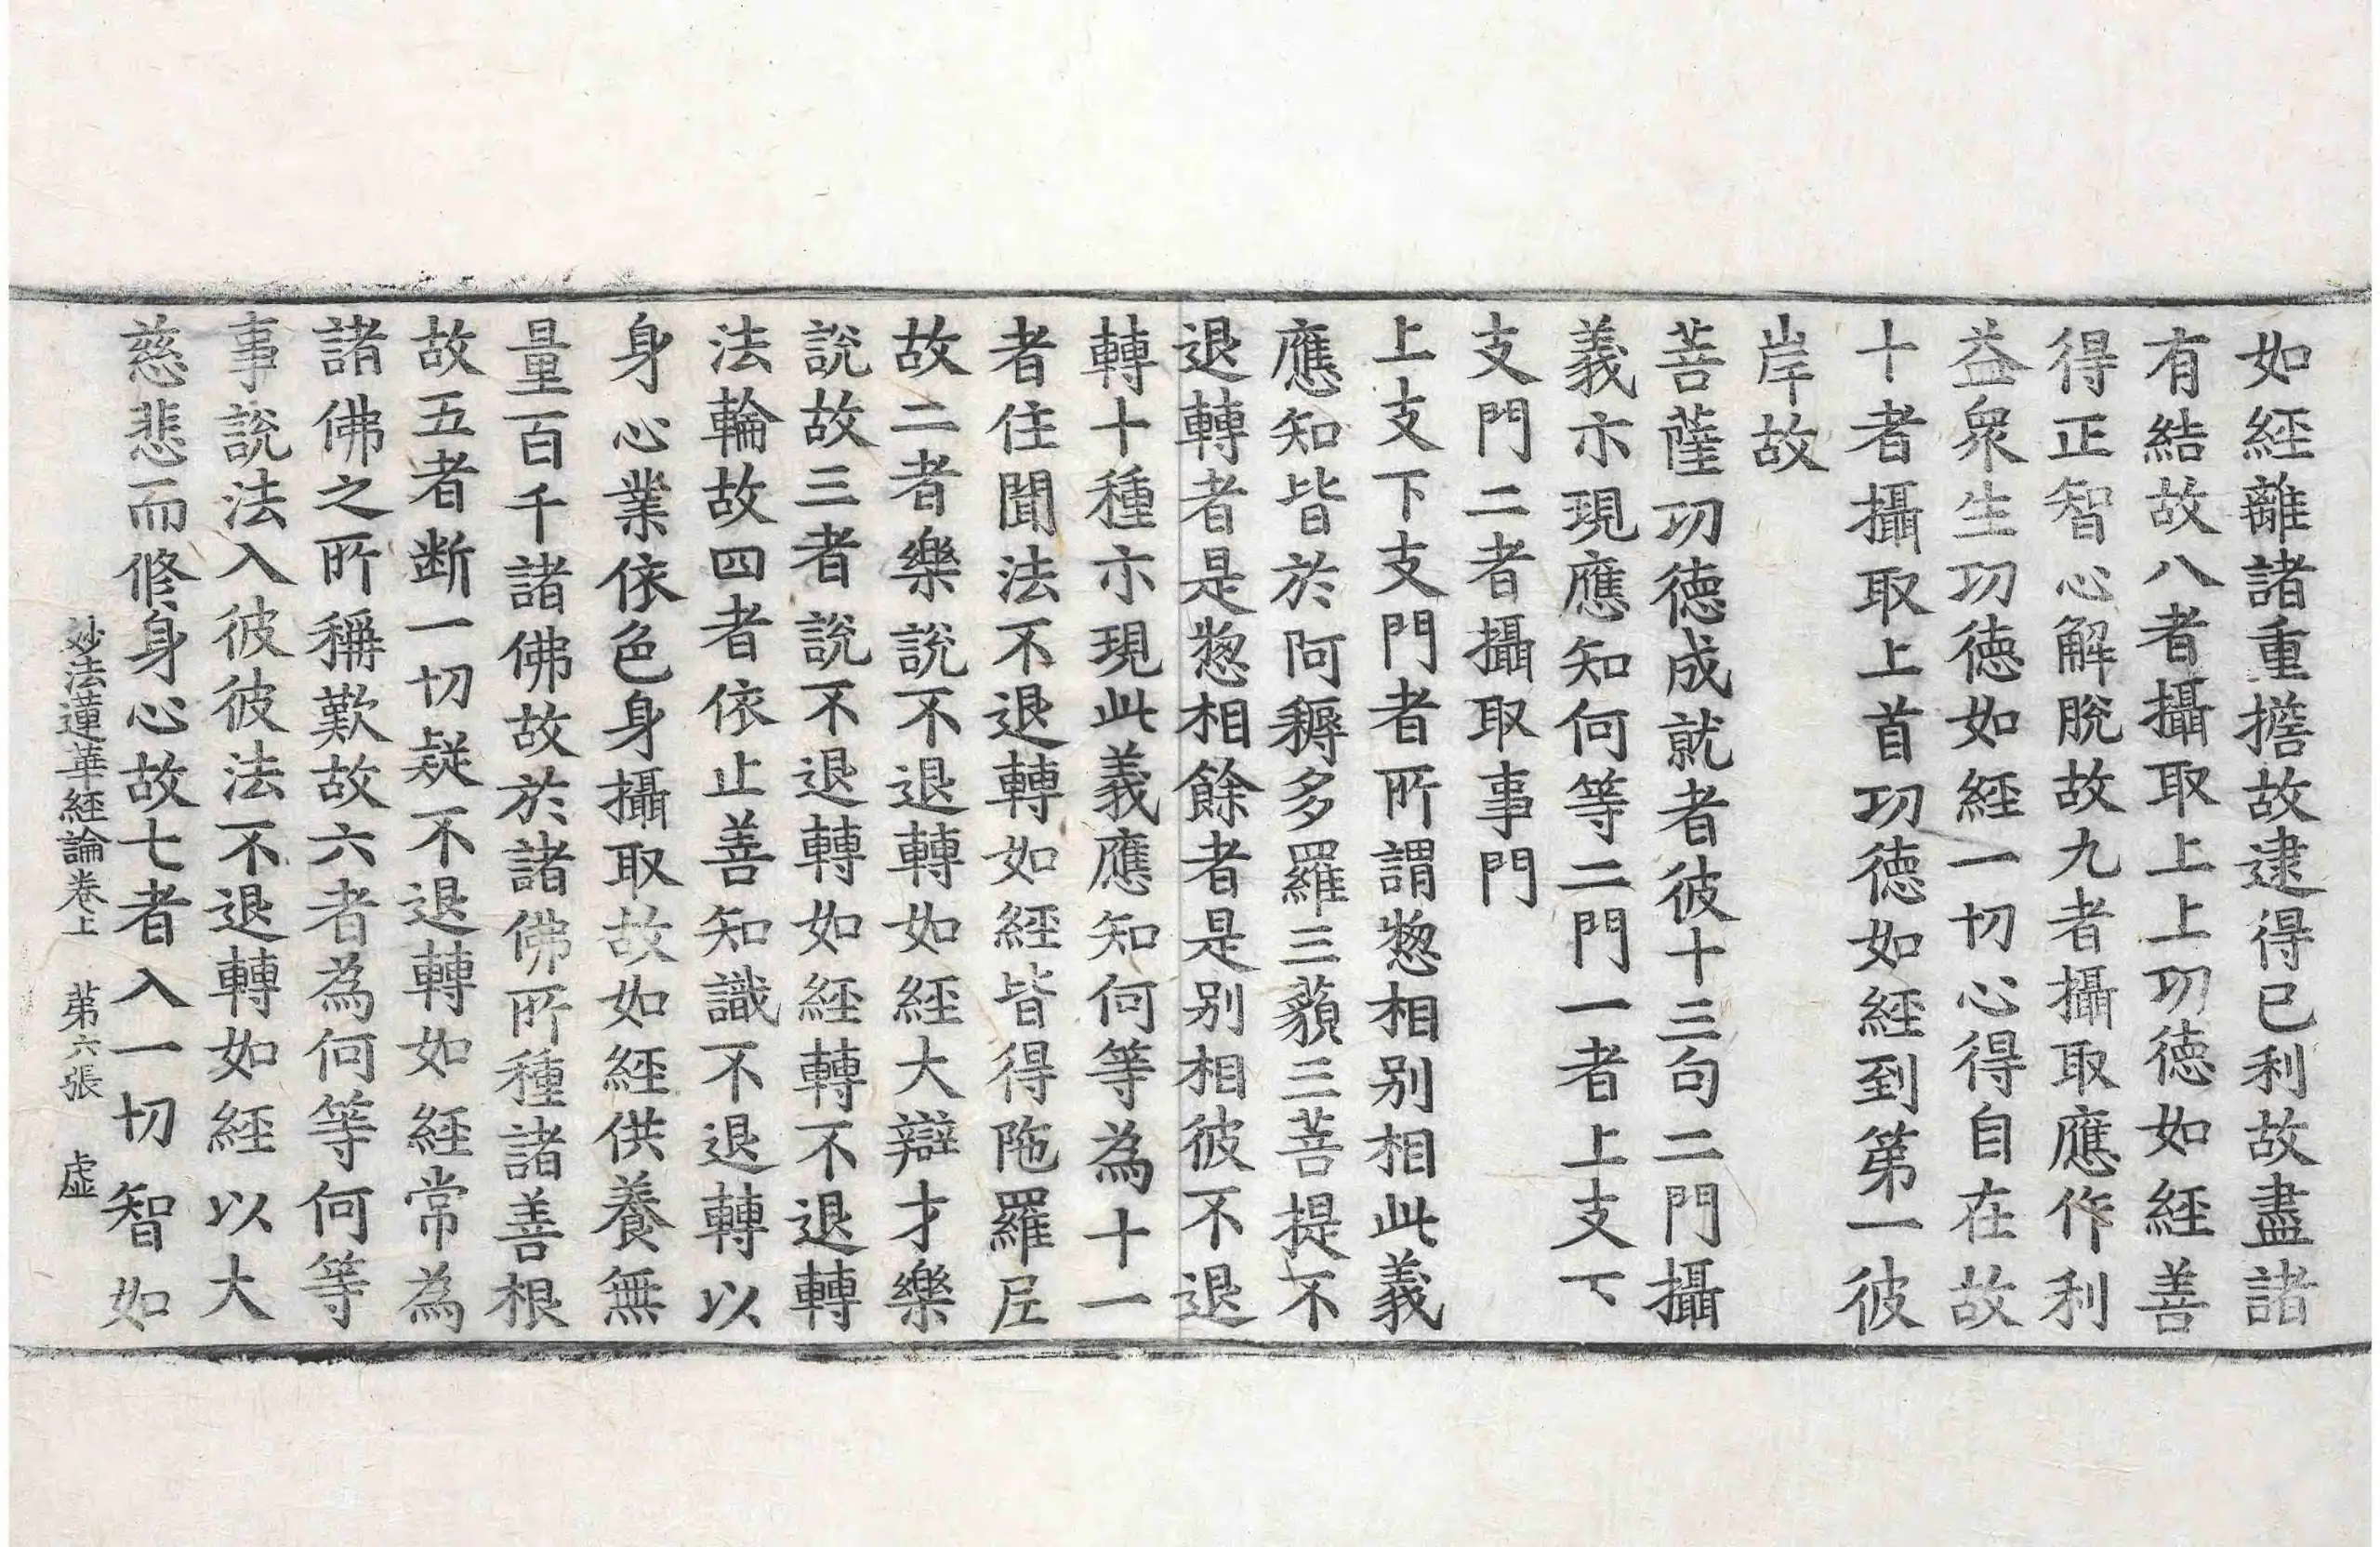 如經離諸重擔故逮得已利故盡諸
有結故八者攝取上上功德如經善
得正智心解脫故九者攝取應作利
益衆生功德如經一切心得自在故
十者攝取上首功德如經到第一彼
岸故
菩薩功德成就者彼十三句二門攝
義示現應知何等二門一者上支下
支門二者攝取事門
上支下支門者所謂惣相別相此義
應知皆於阿耨多羅三藐三菩提不
退轉者是惣相餘者是別相彼不退
轉十種示現此義應知何等為十一
者住聞法不退轉如經皆得陁羅尼
故二者樂說不退轉如經大辯才樂
說故三者說不退轉如經轉不退轉
法輪故四者依止善知識不退轉以
身心業依色身攝取故如經供養無
量百千諸佛故於諸佛所種諸善根
故五者断一切疑不退轉如經常為
諸佛之所稱歎故六者為何等何等
事說法入彼彼法不退轉如經以大
慈悲而修身心故七者入一切智如
妙法蓮華經論卷上 第六張 虛